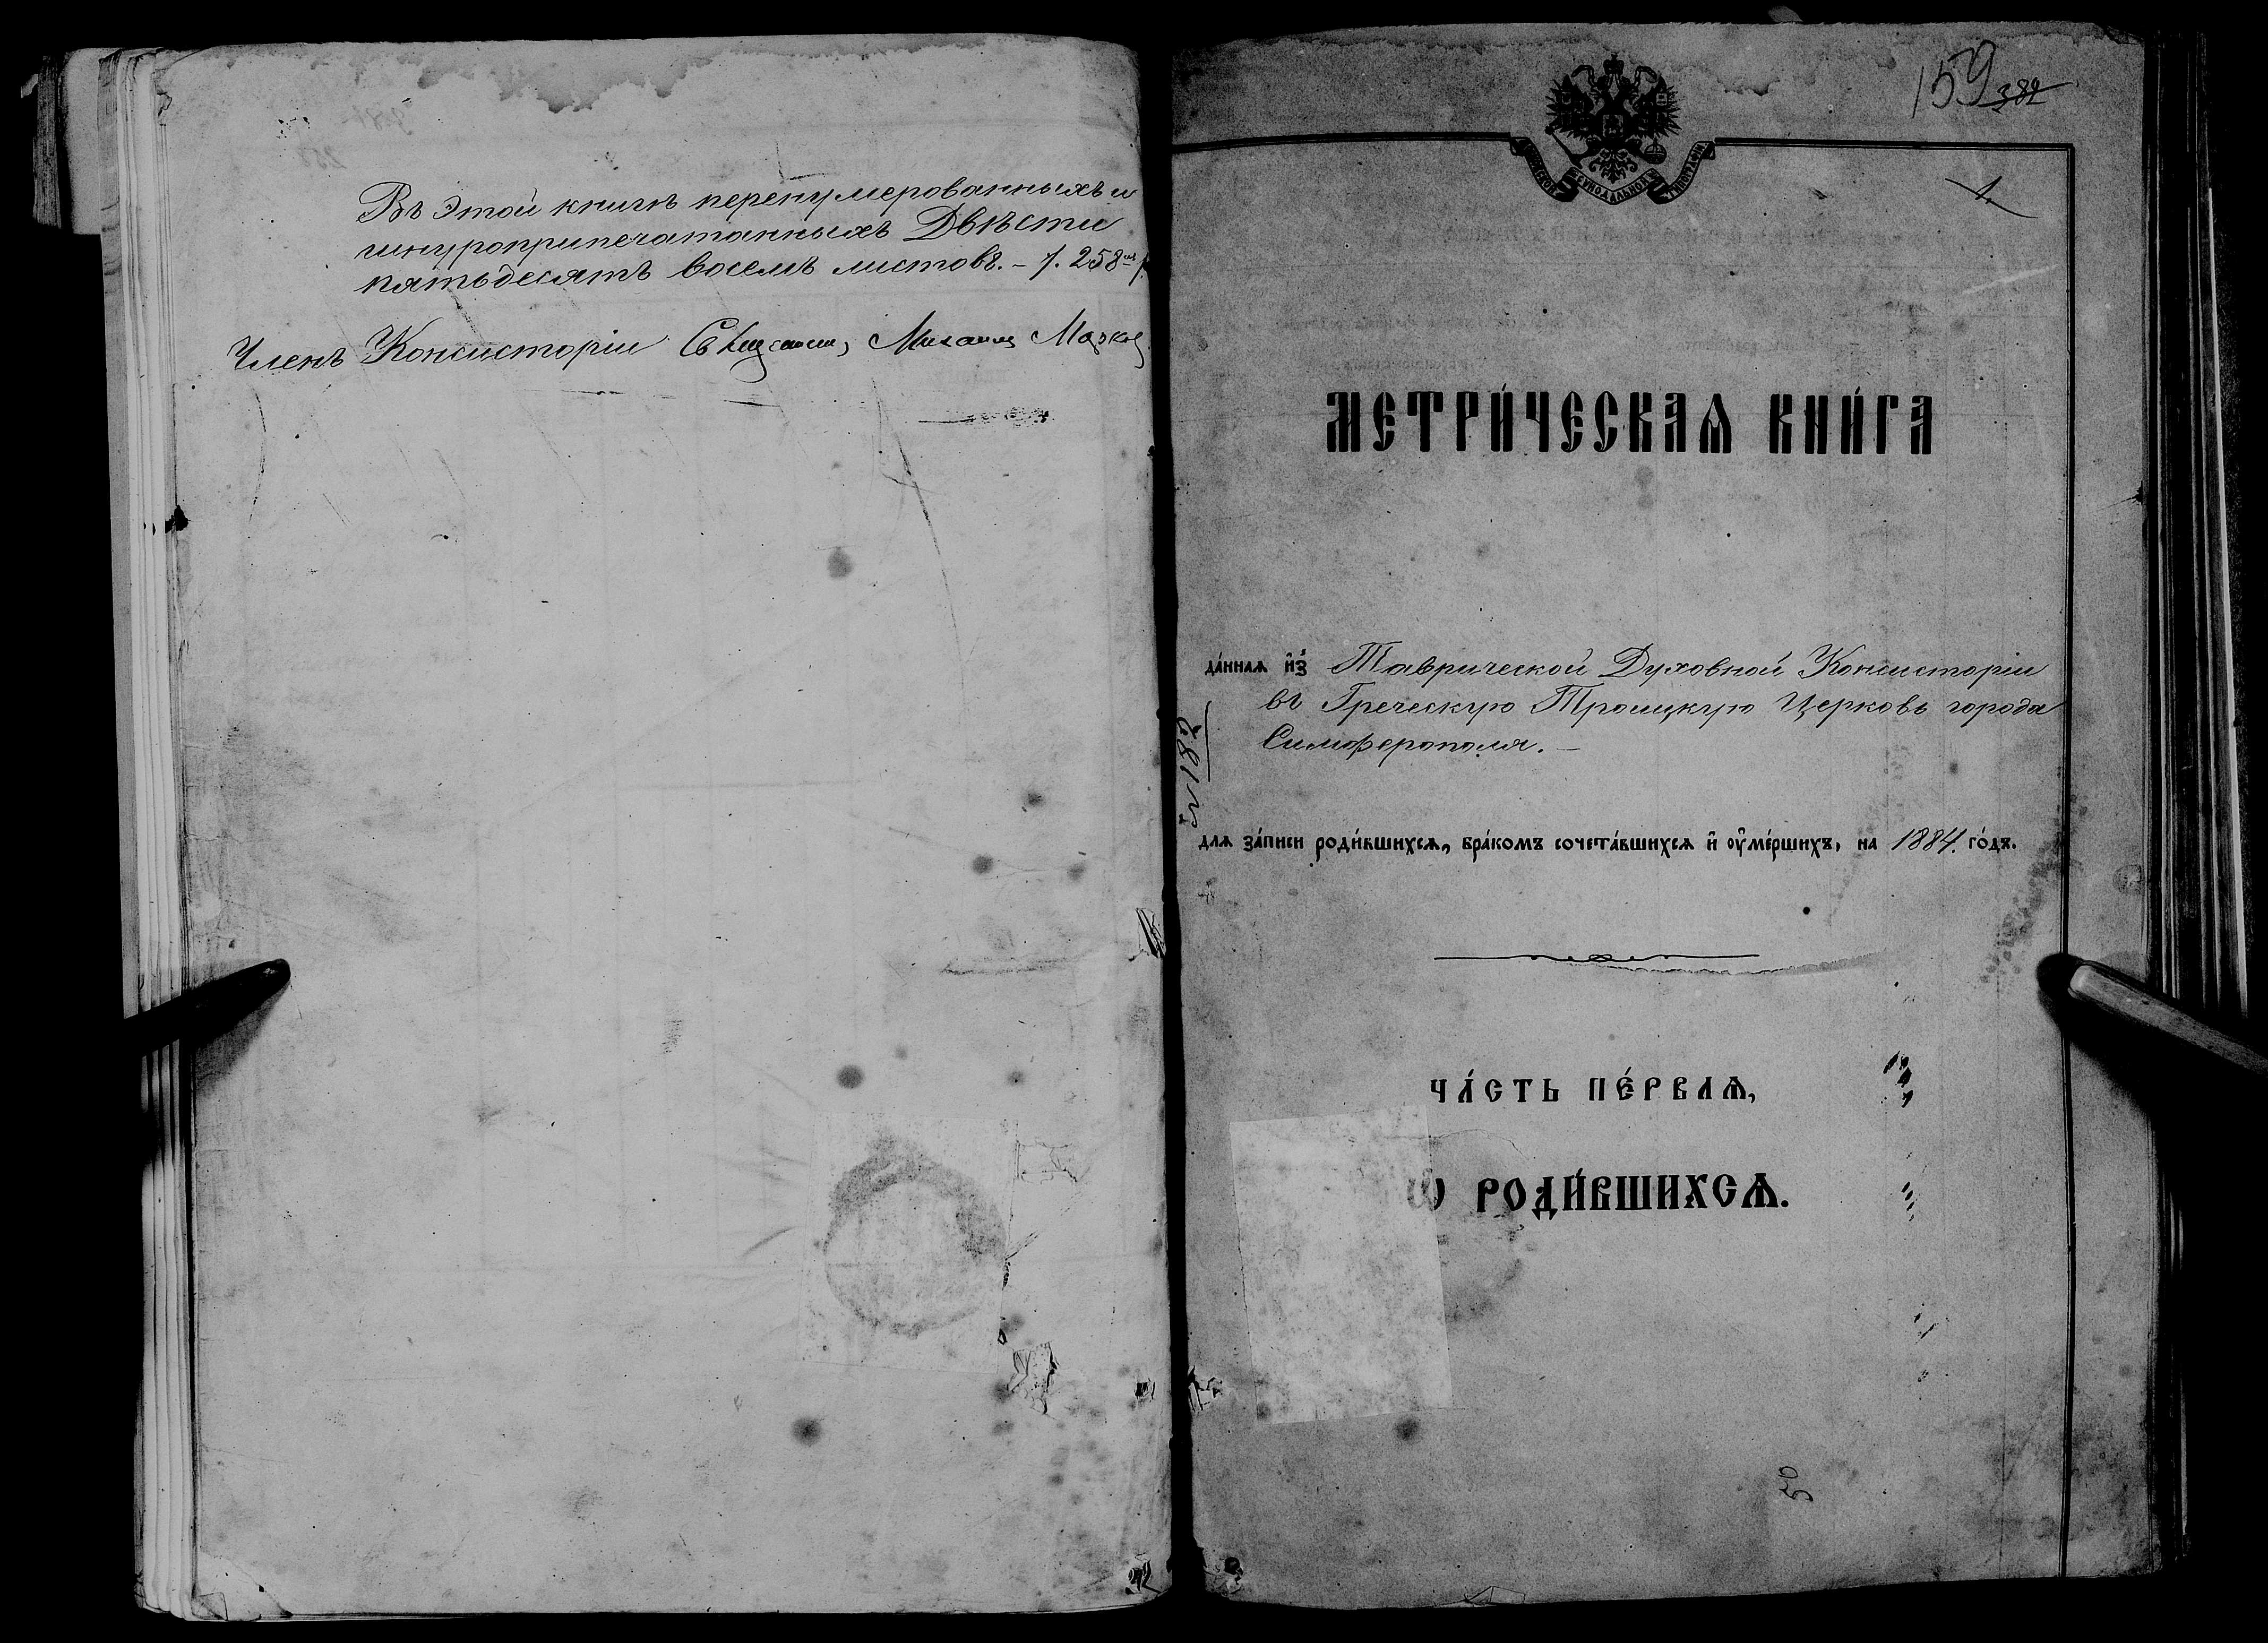 Въ этой книгѣ перенумерованныхъ и
шнуроприпечатанныхъ Двѣсти
пятьдесятъ восемь листовъ. – /. 258 /.
Членъ Консисторіи Священникъ Михаилъ
159 382
1.
СѴНОДАЛЬНОЙ ТИПОГРАФІИ
МЕТРИ́ЧЕСКАѦ КНИ́ГА
да́ннаѧ и҆з̾ Таврической Духовной Консисторіи
въ Греческую Троицкую Церковь города
Симферополя. –
для за́писи роди́вшихсѧ, бра́комъ сочета́вшихсѧ и҆ оу҆ме́ршихъ, на 1884. го́дъ.
ЧА́СТЬ ПЕ́РВАѦ,
Ѡ РОДИ́ВШИХСѦ.
50